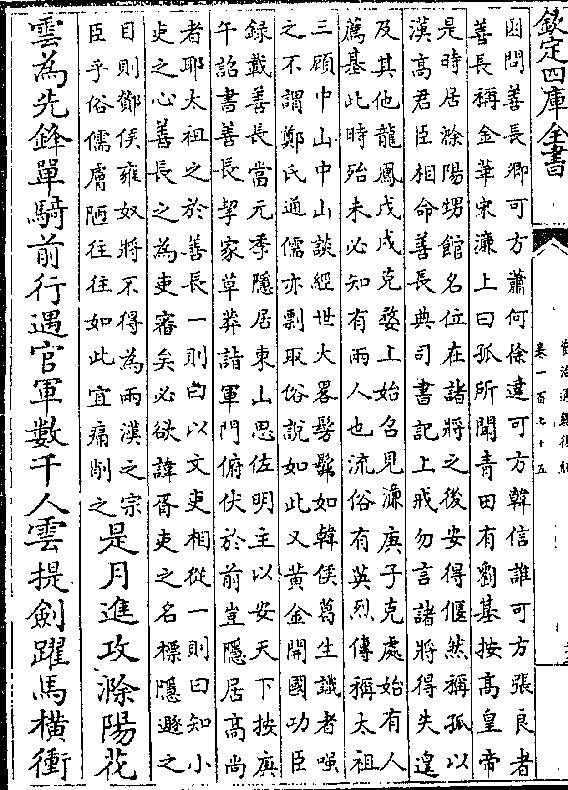 欽定四庫全書
資治通鑑後編
卷一百七十五
因問善長卿可方蕭何徐達可方韓信誰可方張良者
善長稱金華宋濂上曰孤所聞青田有劉基按高皇帝
是時居滁陽甥館名位在諸將之後安得偃然稱孤以
漢高君臣相命善長典司書記上戒勿言諸將得失遑
及其他龍鳳戊戌克婺上始召見濂庚子克處始有人
薦基此時殆未必知有兩人也流俗有英烈傳稱太祖
三顧中山中山談經世大畧髣髴如韓侯葛生識者嗤
之不謂鄭氏通儒亦剽取俗說如此又黃金開國功臣
録載善長當元季隱居東山思佐明主以安天下按庚
午詔書善長挈家草莽詣軍門俯伏於前豈隱居高尚
者耶太祖之於善長一則曰以文吏相從一則曰知小
吏之心善長之為吏審矣必欲諱胥吏之名標隱遯之
目則鄼侯雍奴將不得為兩漢之宗
臣乎俗儒膚陋往往如此宜痛削之
是月進攻滁陽花
雲為先鋒單騎前行遇官軍數千人雲提劍躍馬橫衝